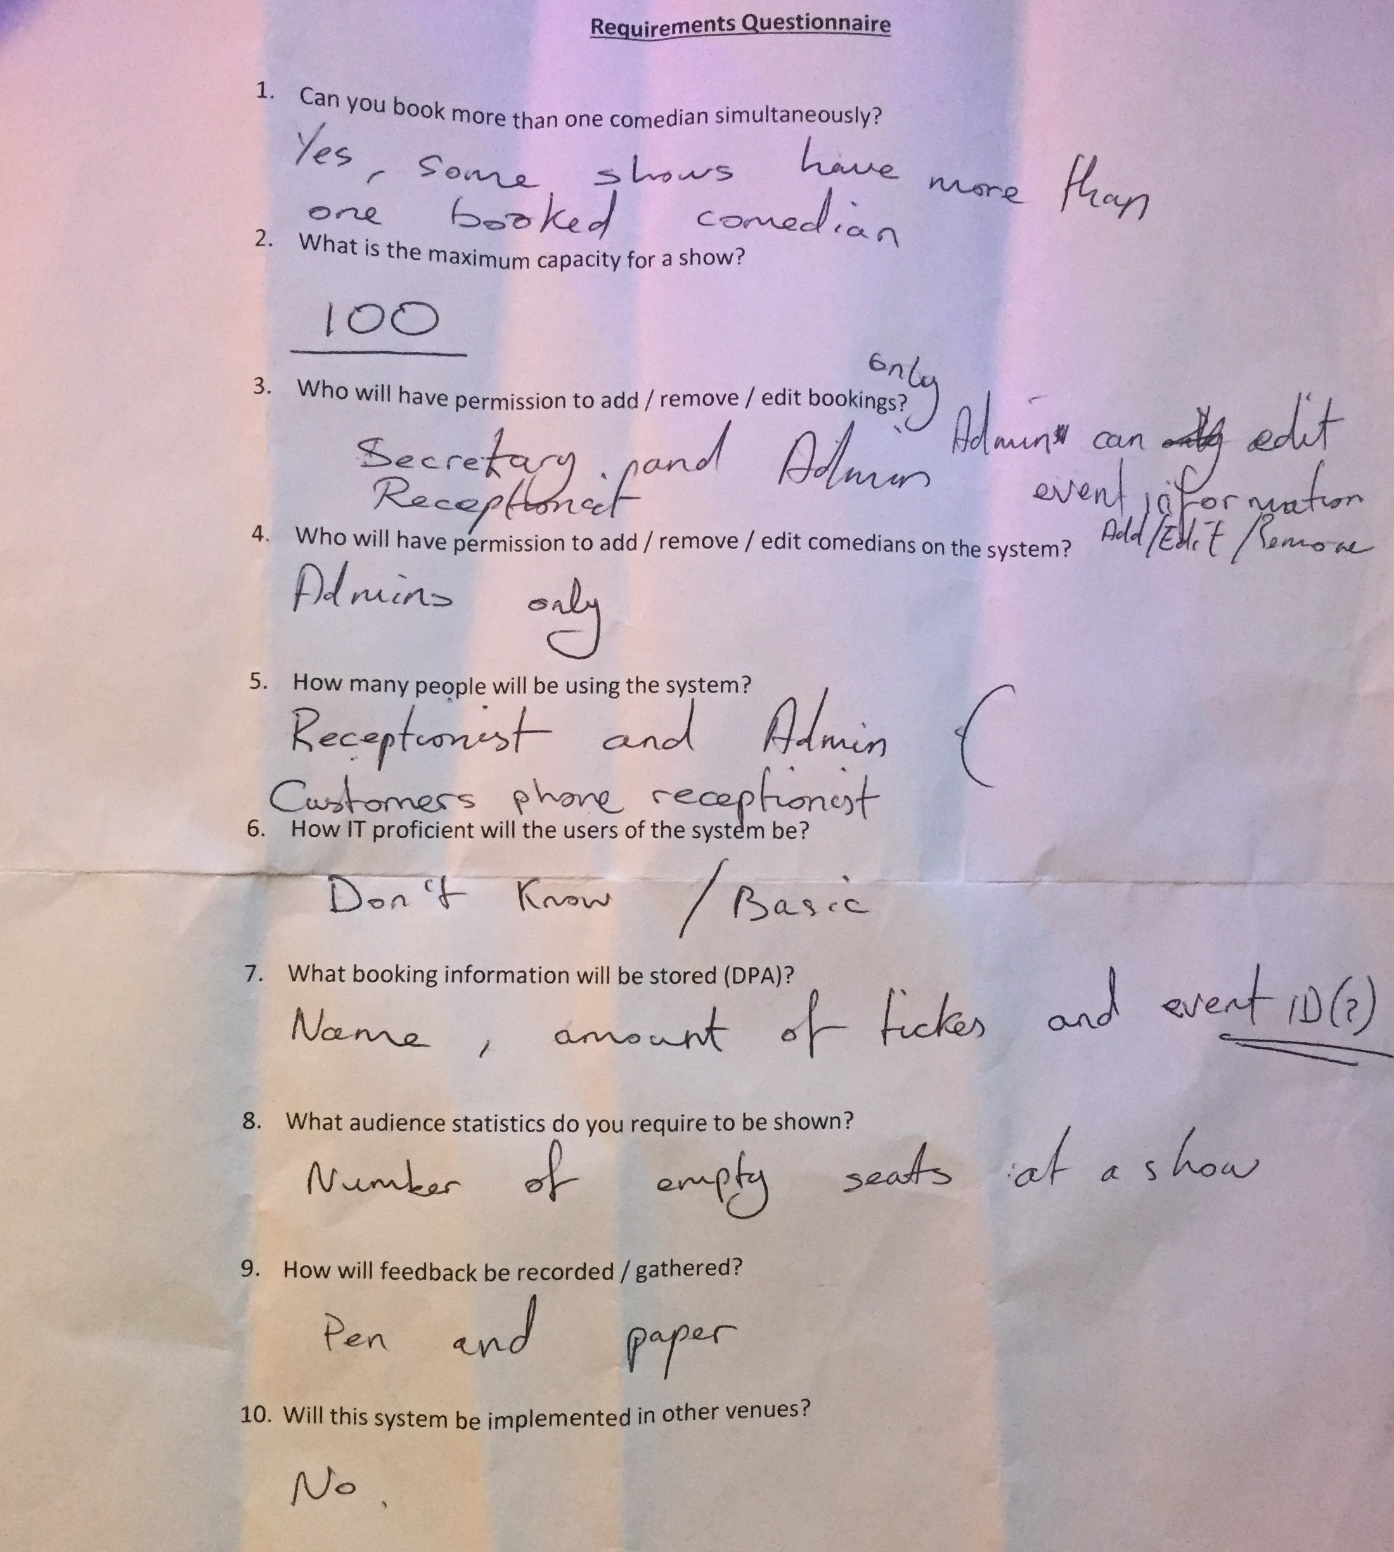 Requirements Questionnaire
1. Can you book more than one comedian simultaneously?
Yes, some shows have more than
one booked comedian
2. What is the maximum capacity for a show?
100
3. Who will have permission to add / remove / edit bookings?
only
Admins can edit
Secretary and Admin
event information
Receptionist
Add/Edit/Remove
4. Who will have permission to add / remove / edit comedians on the system?
Admins only
5. How many people will be using the system?
Receptionist and Admin (
Customers phone receptionist
6. How IT proficient will the users of the system be?
Don't Know / Basic
7. What booking information will be stored (DPA)?
Name, amount of tickes and event ID(?)
8. What audience statistics do you require to be shown?
Number of empty seats at a show
9. How will feedback be recorded / gathered?
Pen and paper
10. Will this system be implemented in other venues?
No.